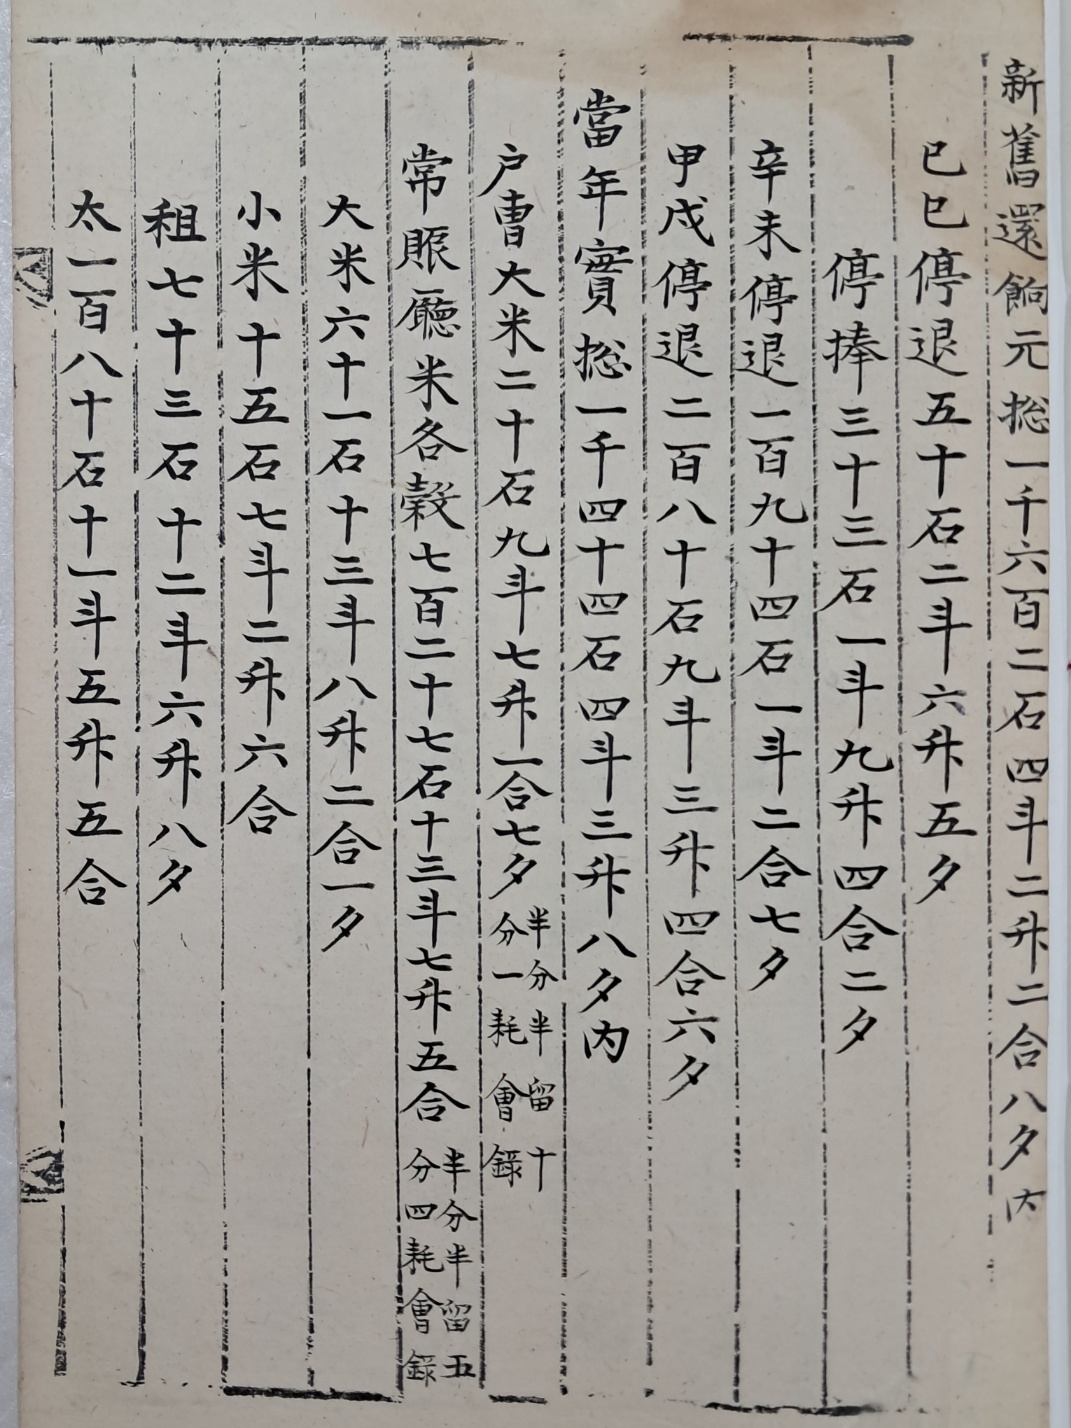 新舊還餉元摠一千六百二石四斗二升二合八夕內
己巳停退五十石二斗六升五夕
停捧三十三石一斗九升四合二夕
辛未停退一百九十四石一斗二合七夕
甲戌停退二百八十石九斗三升四合六夕
當年實摠一千四十四石四斗三升八夕內
戶曺大米二十石九斗七升一合七夕
半分半留十
分一耗會錄
常賑廳米各穀七百二十七石十三斗七升五合
半分半留五
分四耗會錄
大米六十一石十三斗八升二合一夕
小米十五石七斗二升六合
租七十三石十二斗六升八夕
太一百八十石十一斗五升五合